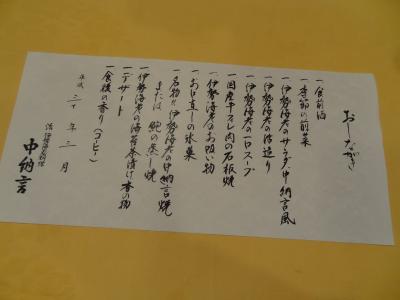 おしながき
一 食前酒
一 季節の前菜
一 伊勢海老のサラダ 中納言風
一 伊勢海老の活造り
一 伊勢海老の一口スープ
一 国産牛ヒレ肉の石板焼
一 伊勢海老のお吸い物
一 お口直しの氷菓
一 名物!! 伊勢海老の中納言焼
または 鮑の蒸し焼
一 伊勢海老の海苔茶漬け 香の物
一 デザート
一 食後の香り (コーヒー)
平成 二十 年 三 月
中納言